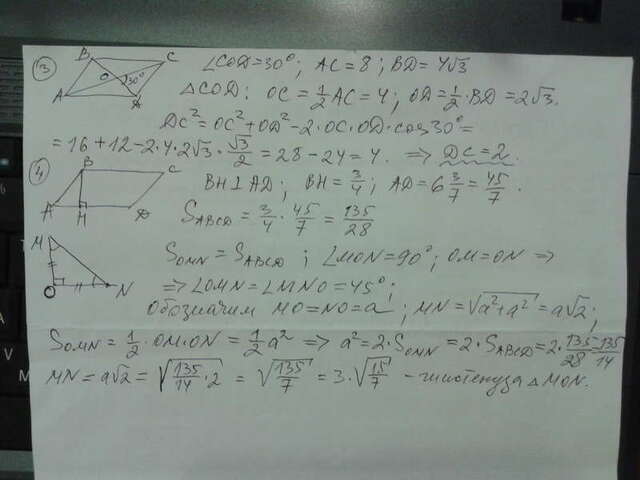 ③ B C O 30° A D ∠COD=30°; AC=8; BD=4√3
△COD: OC=1/2 AC=4; OD=1/2·BD=2√3.
DC²=OC²+OD²-2·OC·OD·cos30°=
=16+12-2·4·2√3·√3/2=28-24=4. ⇒ DC=2.
④ B C A H D BH⊥AD; BH=3/4; AD=6 3/7=45/7.
S_ABCD=3/4·45/7=135/28
M O N S_OMN=S_ABCD; ∠MON=90°; OM=ON ⇒
⇒∠OMN=∠MNO=45°;
обозначим MO=NO=a; MN=√(a²+a²)=a√2;
S_OMN=1/2·OM·ON=1/2 a² ⇒ a²=2·S_OMN=2·S_ABCD=2·135/28=135/14
MN=a√2=√(135/14·2)=√(135/7)=3·√(15/7) - гипотенуза △MON.
V